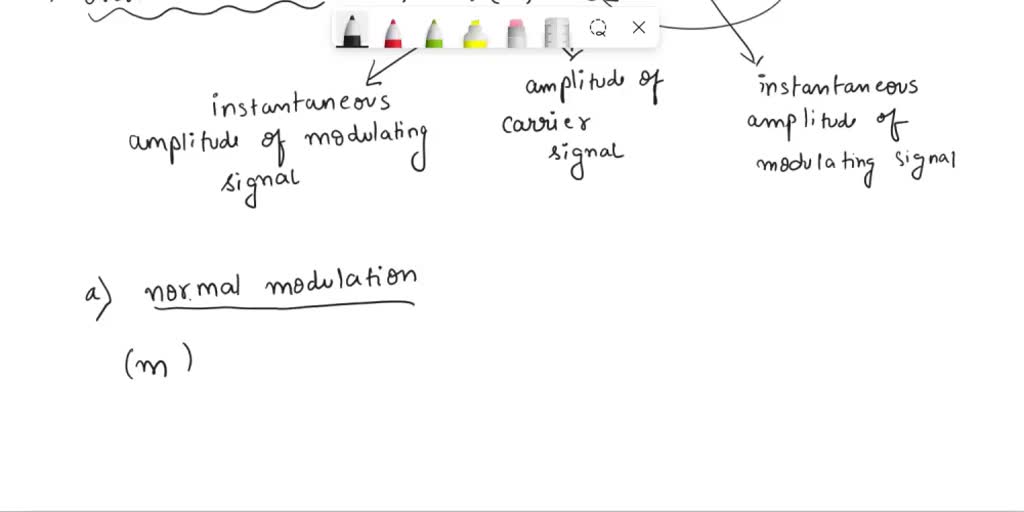 instantaneous
amplitude of modulating
signal
amplitude of
carrier
signal
instantaneous
amplitude of
modulating signal
a) normal modulation
(m )